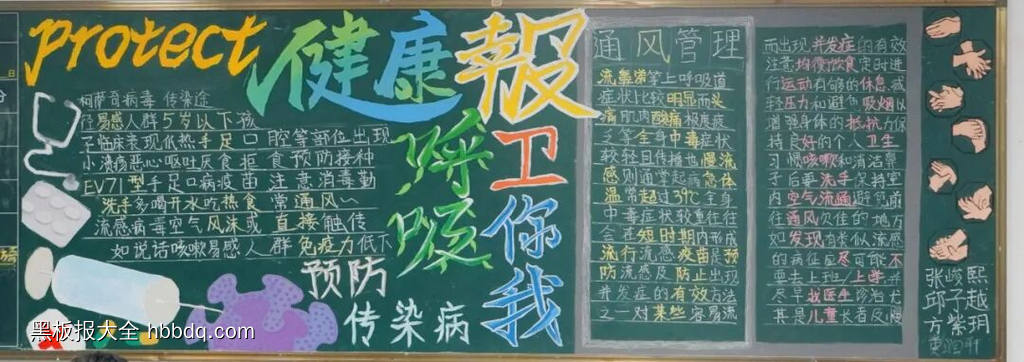 protect 健康報
呼吸
卫你我
预防
传染病
柯萨奇病毒 传染途
径易感人群5岁以下孩
子临床表现低热手足口腔等部位出现
小溃疡恶心呕吐厌食拒食预防接种
EV71型手足口病疫苗 注意消毒勤
洗手多喝开水吃热食 常通风～
流感病毒空气风沫或直接触传
如说话咳嗽易感人群免疫力低下
通风管理
流感 常上呼吸道
症状比较明显而头
痛肌肉酸痛极度疲
乏等全身中毒症状
较轻且传播也慢流
感则通常起病急体
温常超过39℃全身
中毒症状较重往往
会在短时期内形成
流行流感疫苗是预
防流感及防止出现
并发症的有效方法
之一对某些容易流
而出现并发症的有效
注意均衡饮食定时进
行运动有够的休息减
轻压力和避免吸烟以
增强身体的抵抗力保
持良好的个人卫生
习惯咳嗽和清洁鼻
子后要洗手保持室
内空气流通避免前
往通风欠佳的地方
如发现有类似流感
的病征应尽可能不
要去上班/上学并
尽早找医生诊治尤
其是儿童长者及
张峻熙
邱子越
方紫玥
黑板报大全 hbbdq.com